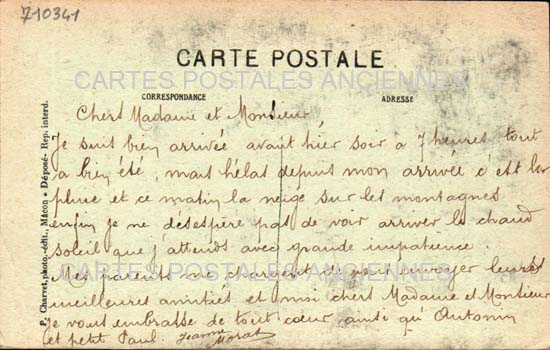 710341
CARTE POSTALE
CARTES POSTALES ANCIENNES
CORRESPONDANCE
ADRESSE
Chers Madame et Monsieur,
Je suis bien arrivée avant hier soir à 7 heures tout
a bien été, mais hélas depuis mon arrivée c'est la
pluie et ce matin la neige sur les montagnes
enfin je ne désespère pas de voir arriver le chaud
soleil que j'attends avec grande impatience.
Mes parents me chargent de vous envoyer leurs
CARTES POSTALES ANCIENNES
meilleures amitiés et moi chers Madame et Monsieur
je vous embrasse de tout cœur ainsi qu'Antonin
et petit Paul. Jeanne
Morat
P. Charvet, photo.-édit., Mâcon - Déposé - Rep. interd.